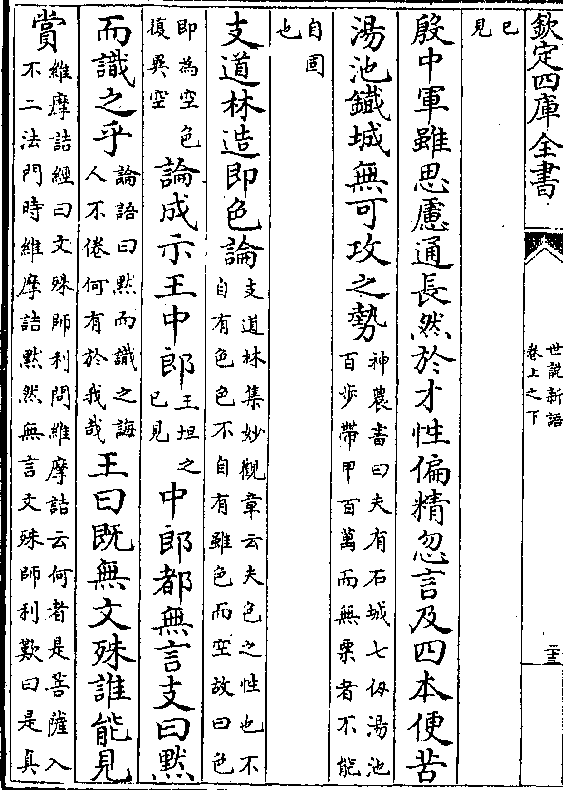 欽定四庫全書
世說新語
卷上之下
二十三
已
見
殷中軍雖思慮通長然於才性偏精忽言及四本便苦
湯池鐵城無可攻之勢
神農書曰夫有石城七仞湯池
百步帶甲百萬而無粟者不能
自固
也
支道林造即色論
支道林集妙觀章云夫色之性也不
自有色色不自有雖色而空故曰色
即為空色
復異空
論成示王中郎
王坦之
已見
中郎都無言支曰默
而識之乎
論語曰默而識之誨
人不倦何有於我哉
王曰既無文殊誰能見
賞
維摩詰經曰文殊師利問維摩詰云何者是菩薩入
不二法門時維摩詰默然無言文殊師利歎曰是真